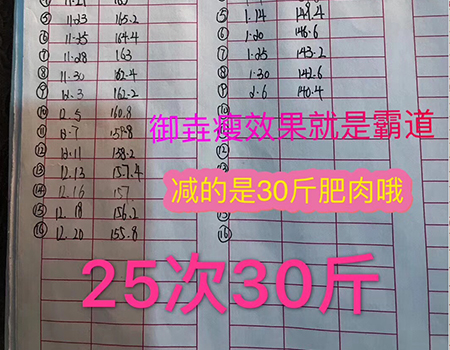 ⑤ 11.23 165.2
⑥ 11.25 164.4
⑦ 11.28 163
⑧ 11.30 162.4
⑨ 12.3 162.2
⑩ 12.5 160.8
⑪ 12.7 159.8
⑫ 12.11 158.2
⑬ 12.13 157.4
⑭ 12.16 157
⑮ 12.18 156.2
⑯ 12.20 155.8
⑤ 1.14 148.4
⑥ 1.20 146.6
⑦ 1.25 143.2
⑧ 1.30 142.6
⑨ 2.6 140.4
⑩
⑪
⑫
⑬
⑭
⑮
⑯
御垚瘦效果就是霸道
减的是30斤肥肉哦
25次30斤